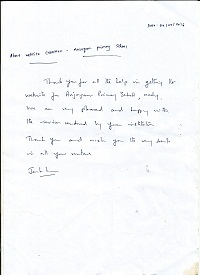 About website creation - Anjarpur primary School
Thank you for all the help in getting the
website for Anjarpur Primary School, ready.
We are very pleased and happy with
the services rendered by your institution.
Thank you and wish you the very best
in all your ventures